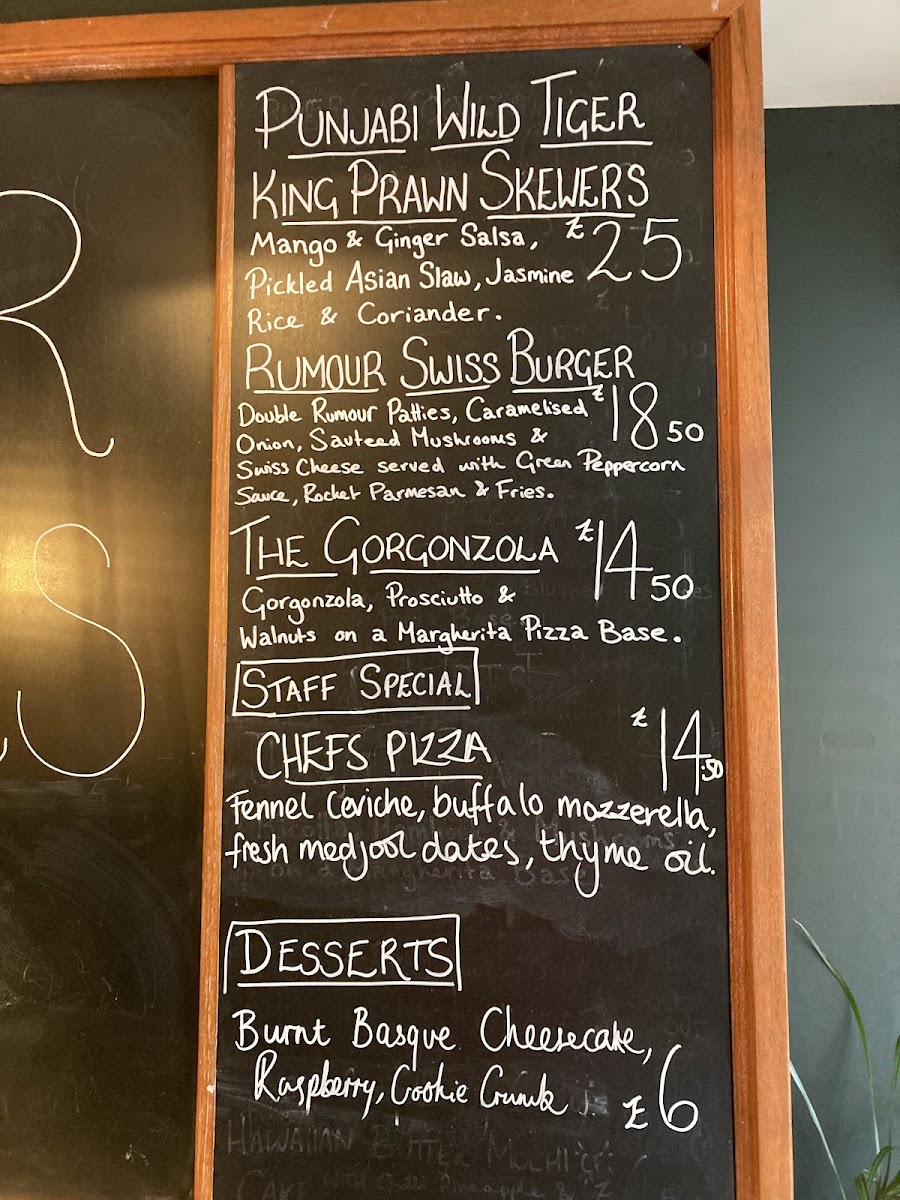 R
S
PUNJABI WILD TIGER
KING PRAWN SKEWERS
Mango & Ginger Salsa, £25
Pickled Asian Slaw, Jasmine
Rice & Coriander.
RUMOUR SWISS BURGER
Double Rumour Patties, Caramelised £18 50
Onion, Sauteed Mushrooms &
Swiss Cheese served with Green Peppercorn
Sauce, Rocket Parmesan & Fries.
THE GORGONZOLA £14 50
Gorgonzola, Prosciutto &
Walnuts on a Margherita Pizza Base.
STAFF SPECIAL
CHEFS PIZZA £14.50
Fennel Ceviche, buffalo mozzerella,
fresh medjool dates, thyme oil.
DESSERTS
Burnt Basque Cheesecake,
Raspberry, Cookie Crumb £6
HAWAIIAN BUTTER MOCHI
CAKE with